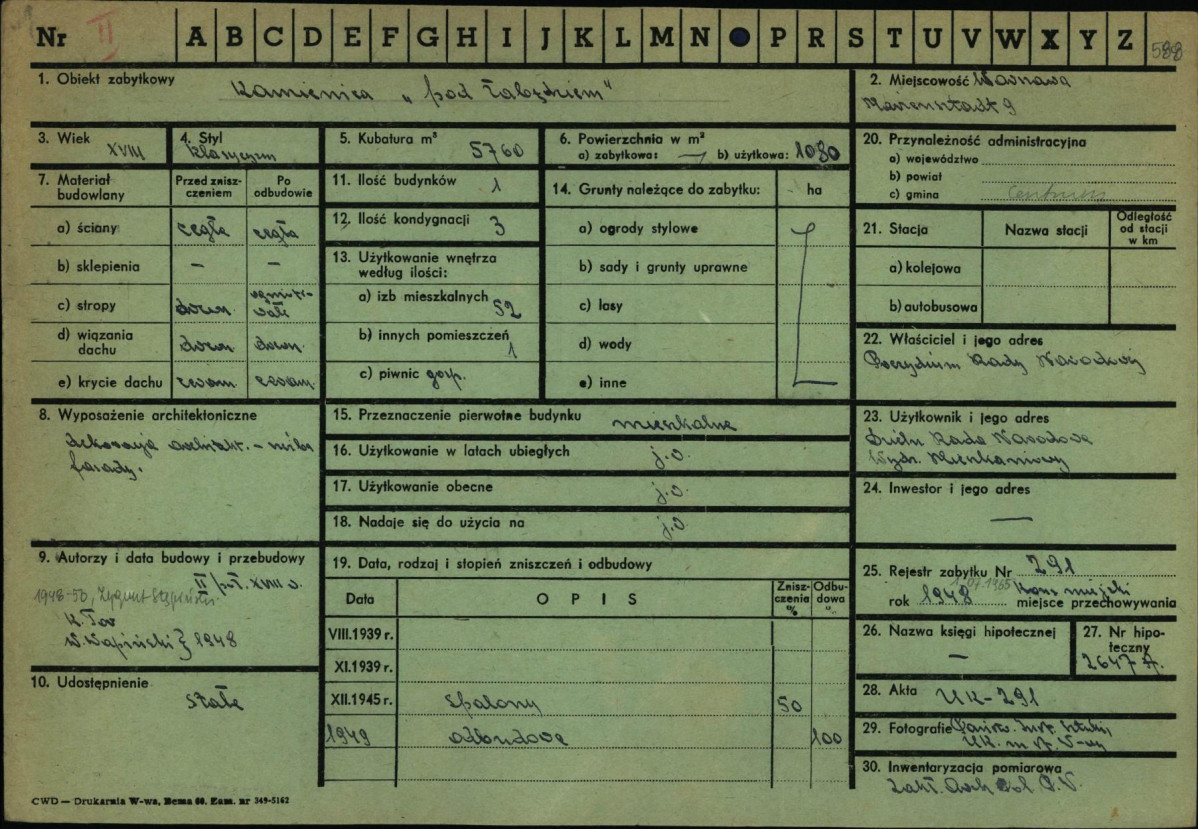 Nr II A B C D E F G H I J K L M N P R S T U V W X Y Z 588
1. Obiekt zabytkowy Kamienica „pod Łabędziem"
2. Miejscowość Warszawa
Marienstadt 9
3. Wiek XVIII
4. Styl klasycyzm
5. Kubatura m³ 5760
6. Powierzchnia w m²
a) zabytkowa: — b) użytkowa: 1080
20. Przynależność administracyjna
a) województwo
b) powiat
c) gmina Centrum
7. Materiał budowlany
Przed zniszczeniem
Po odbudowie
a) ściany cegła cegła
b) sklepienia – –
c) stropy drewn. ogniotrwałe
d) wiązania dachu drewn. drewn.
e) krycie dachu ceram. ceram.
11. Ilość budynków 1
12. Ilość kondygnacji 3
13. Użytkowanie wnętrza
według ilości:
a) izb mieszkalnych 52
b) innych pomieszczeń 1
c) piwnic gosp.
14. Grunty należące do zabytku: ha
a) ogrody stylowe
b) sady i grunty uprawne
c) lasy
d) wody
e) inne
21. Stacja
Nazwa stacji
Odległość
od stacji
w km
a) kolejowa
b) autobusowa
22. Właściciel i jego adres
Prezydium Rady Narodowej
8. Wyposażenie architektoniczne
dekoracja architekt. –
fasady.
15. Przeznaczenie pierwotne budynku mieszkalne
16. Użytkowanie w latach ubiegłych j.w.
17. Użytkowanie obecne j.w.
18. Nadaje się do użycia na j.w.
23. Użytkownik i jego adres
Rada Narodowa
Wydz. Mieszkaniowy
24. Inwestor i jego adres
—
9. Autorzy i data budowy i przebudowy
II poł. XVIII w.
1948-50, Zygmunt Stępiński
K. Tor
W. Wapiński } 1948
19. Data, rodzaj i stopień zniszczeń i odbudowy
Data
OPIS
Zniszczenia %
Odbudowa %
VIII.1939 r.
XI.1939 r.
XII.1945 r. Spalony 50
1949 odbudowa 100
25. Rejestr zabytku Nr 291
1.07.1965
rok 1948 Kons. miejski
miejsce przechowywania
26. Nazwa księgi hipotecznej
—
27. Nr hipoteczny
2647 A.
10. Udostępnienie
Stałe
28. Akta UK-291
29. Fotografie Państw. Inst. Sztuki,
UK. m. st. W-wy
30. Inwentaryzacja pomiarowa
Zakł. Arch. Pol. P.W.
CWD — Drukarnia W-wa, Bema 60. Zam. nr 349-5162